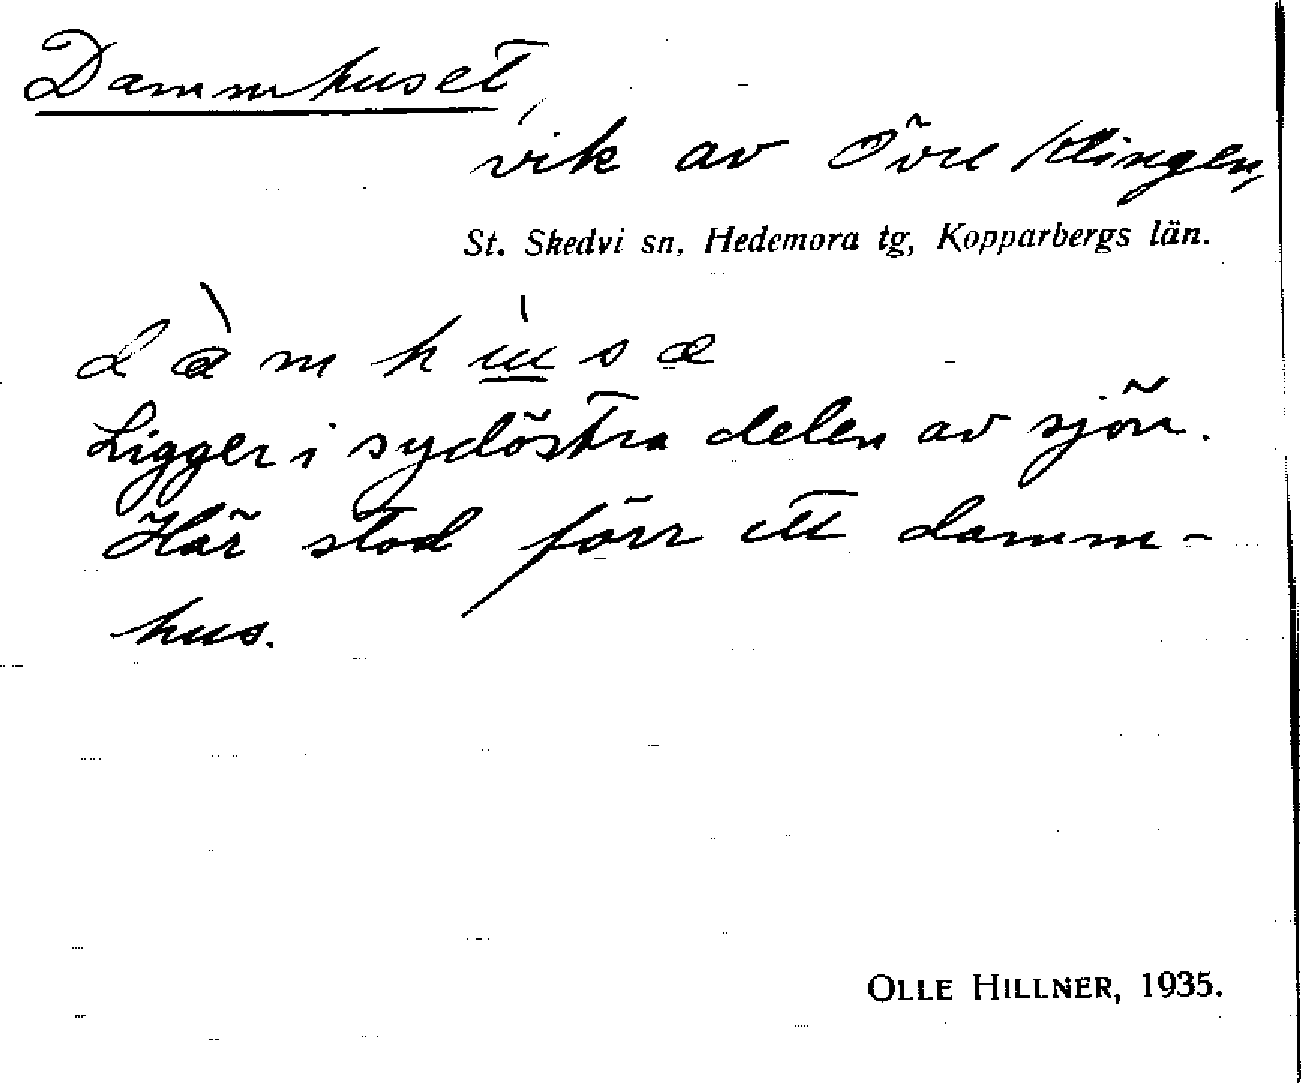 Dammhuset,
vik av Övre Klingen,
St. Skedvi sn, Hedemora tg, Kopparbergs län.
Ligger i sydöstra delen av sjön.
Här stod förr ett damm-
hus.
OLLE HILLNER, 1935.